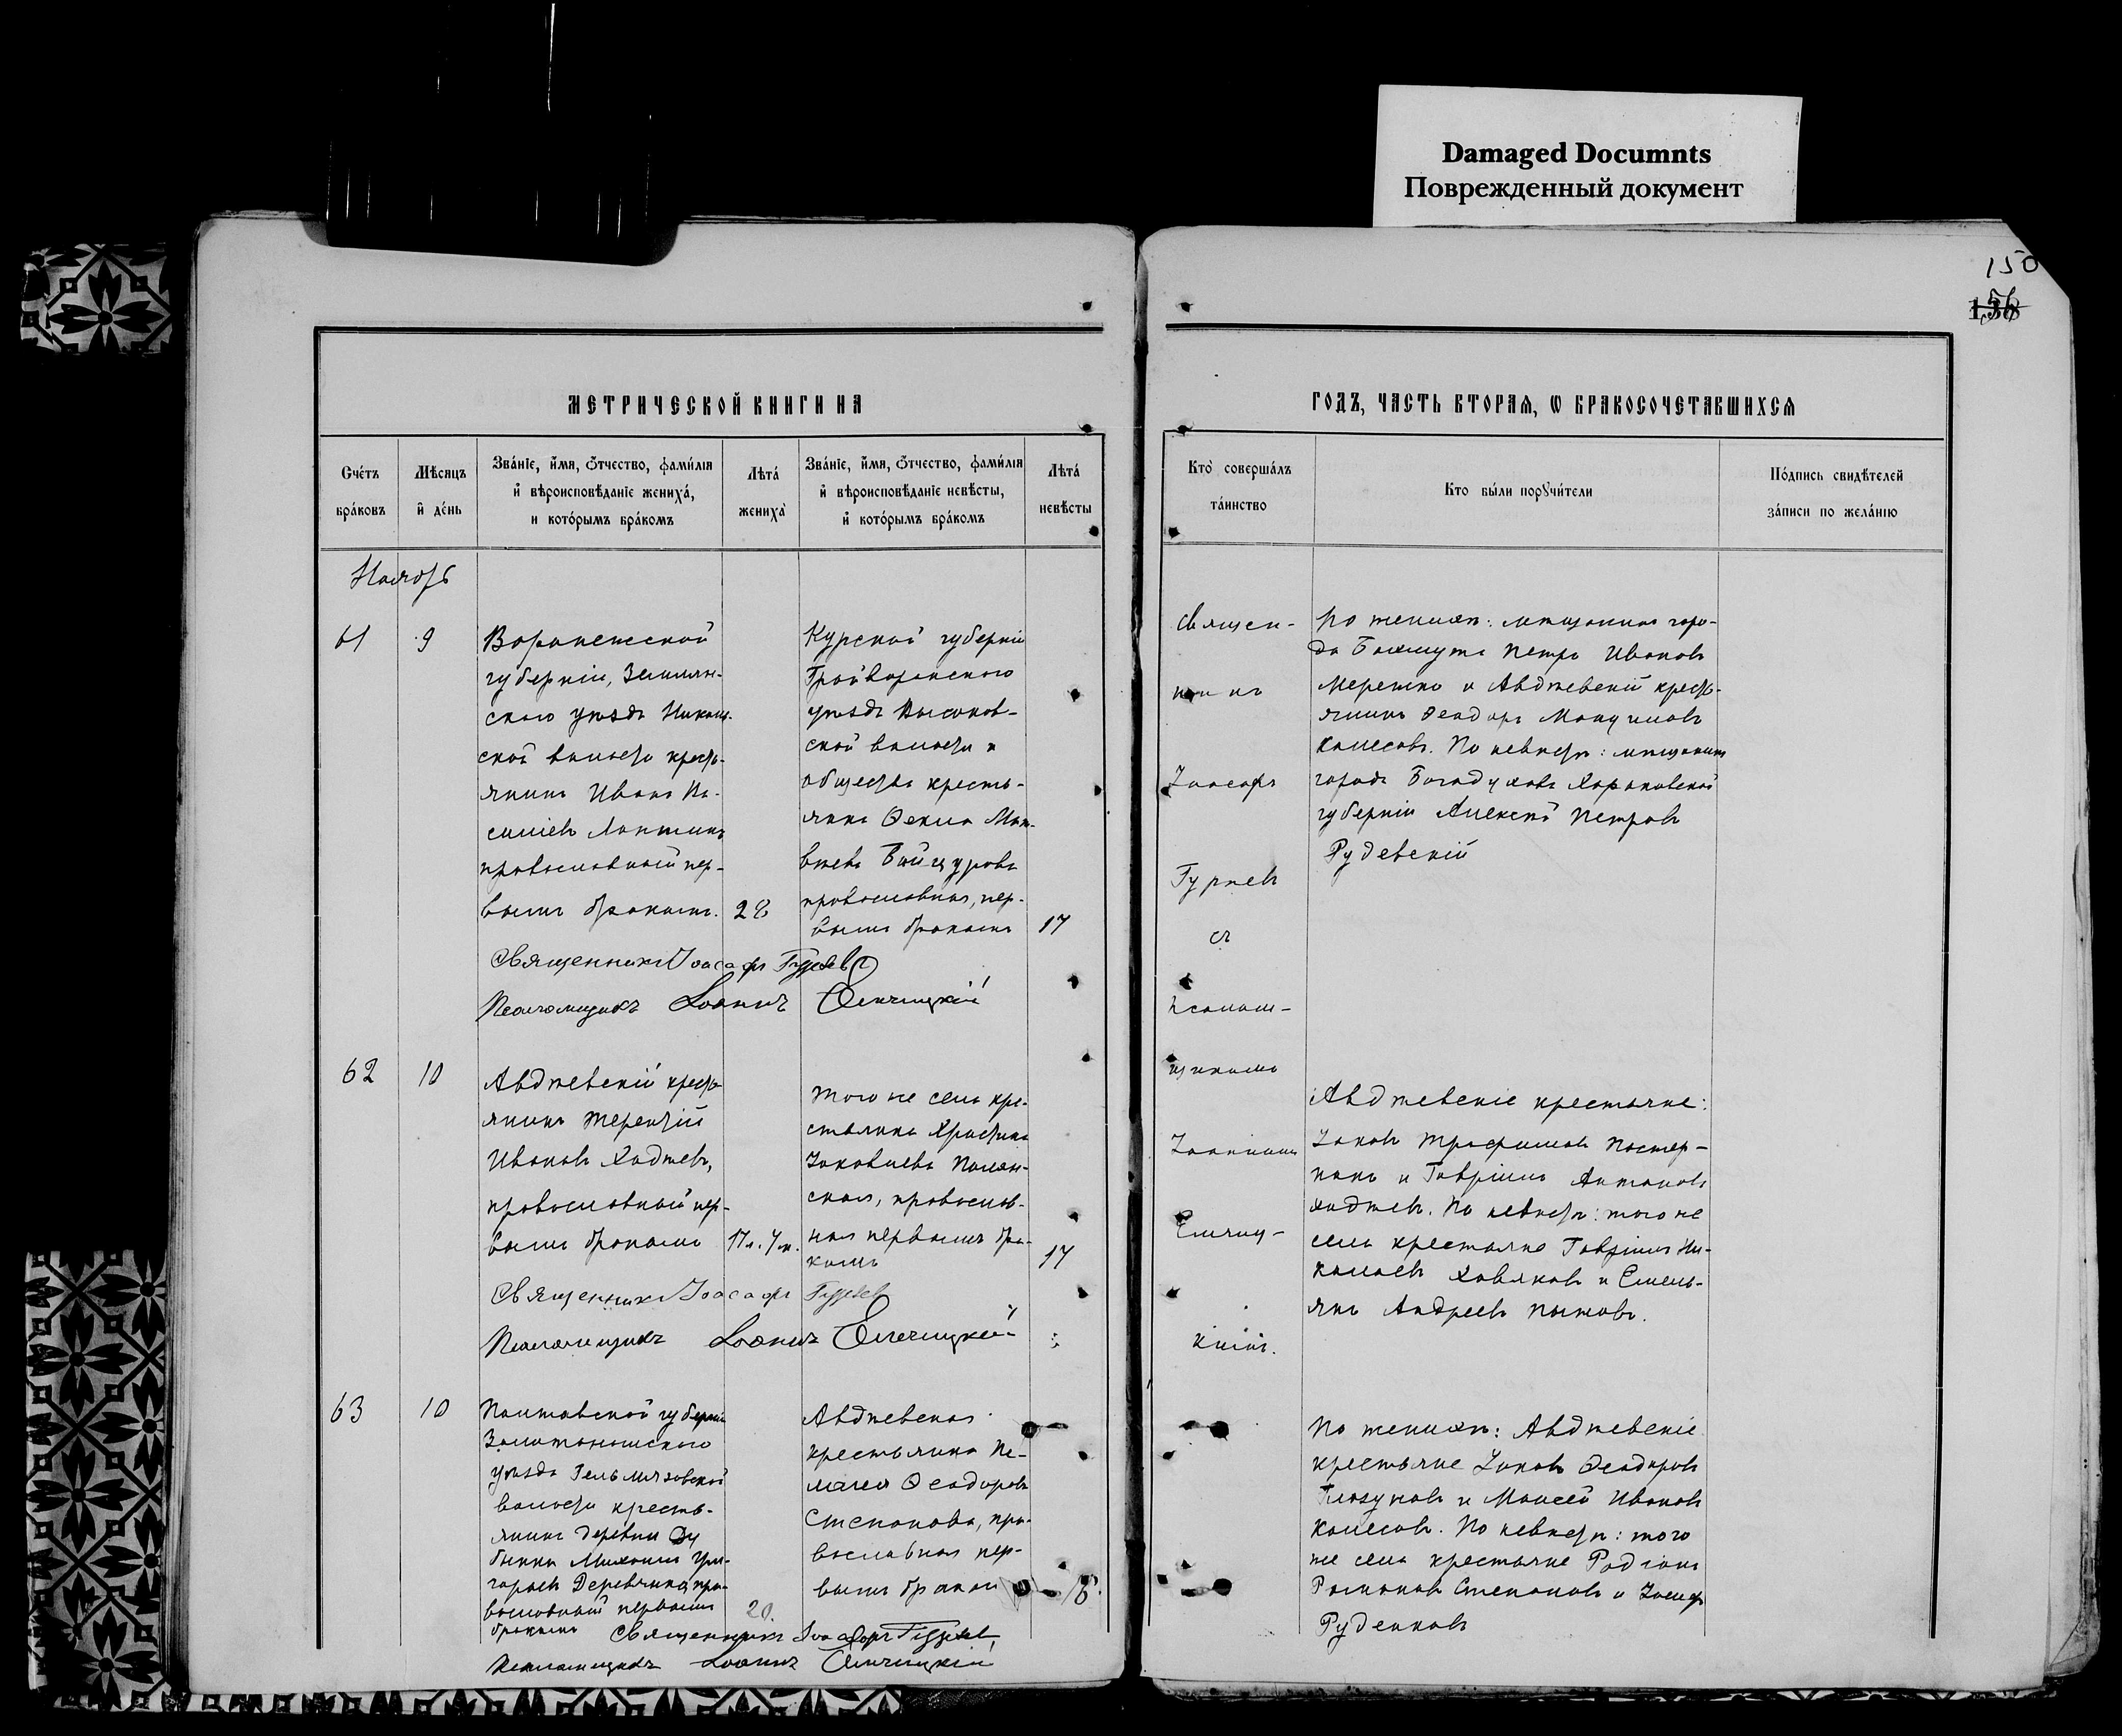 Damaged Documnts
Поврежденный документ
150
МЕТРИЧЕСКОЙ КНИГИ НА
ГОДЪ, ЧАСТЬ ВТОРАЯ, Ѡ БРАКОСОЧЕТАВШИХСЯ
Счетъ браковъ
Мѣсяцъ и день
Званіе, имя, ѻтчество, фамилія
и вѣроисповѣданіе жениха,
и которымъ бракомъ
Лѣта жениха
Званіе, имя, ѻтчество, фамилія
и вѣроисповѣданіе невѣсты,
и которымъ бракомъ
Лѣта невѣсты
Кто совершалъ
таинство
Кто были порꙋчители
Подпись свидѣтелей
записи по желанію
Ноябрь
61
9
Воронежской
губерніи, Землян-
скаго уѣзда
ской волости кресть-
янинъ Иванъ Ва-
силіевъ Лаптинъ
православный пер-
вымъ бракомъ.
28
Курской губерніи
Грайворонскаго
уѣзда Высоков-
ской волости и
общества кресть-
янка Ѳекла Мат-
вѣева
православная, пер-
вымъ бракомъ
17
Священникъ Іоасафъ Гурьевъ
Псаломщикъ Іоаннъ Елчицкій
62
10
Авдѣевскій кресть-
янинъ Терентій
Ивановъ Хаджевъ,
православный пер-
вымъ бракомъ
17 л.
того же села кре-
стьянка Христина
Іаковлева Полян-
ская, православ-
ная первымъ бра-
комъ
17
Священникъ Іоасафъ Гурьевъ
Псаломщикъ Іоаннъ Елчицкій
63
10
Полтавской губерніи
Золотоношскаго
уѣзда Гельмязовской
волости кресть-
янинъ деревни
Михаилъ Гри-
горьевъ Деревянко, пра-
вославный первымъ
бракомъ
20.
Авдѣевская
крестьянка Пе-
лагея Ѳеодорова
Степанова, пра-
вославная пер-
вымъ браком
Священникъ Іоасафъ Гурьевъ,
Псаломщикъ Іоаннъ Елчицкій
Священ-
никъ
Іоасафъ
Гурьевъ
съ
псалом-
щикомъ
Іоанномъ
Елчиц-
кимъ.
По женихѣ: мѣщанинъ горо-
да Бахмута Петръ Ивановъ
Мережко и Авдѣевскій кресть-
янинъ Ѳеодоръ
Колесовъ. По невѣстѣ: мѣщанинъ
города Богодухова Харьковской
губерніи Алексѣй Петровъ
Рудевскій
Авдѣевскіе крестьяне:
Іаковъ Трофимовъ Пастер-
накъ и Гавріилъ Антоновъ
Хаджевъ. По невѣстѣ: того же
села крестьяне Гавріилъ Ни-
колаевъ Ховяковъ и Емель-
янъ Андреевъ Пыжовъ.
По женихѣ: Авдѣевскіе
крестьяне Іаковъ Ѳеодоровъ
Глазуновъ и Моисей Ивановъ
Колесовъ. По невѣстѣ: того
же села крестьяне Родіонъ
Романовъ Степановъ и Іосифъ
Руденковъ